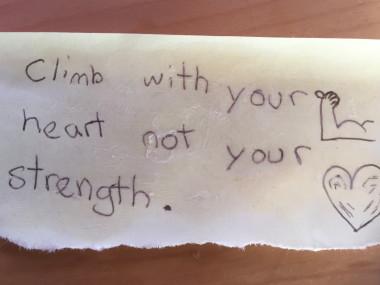 Climb with your
heart not your
strength.